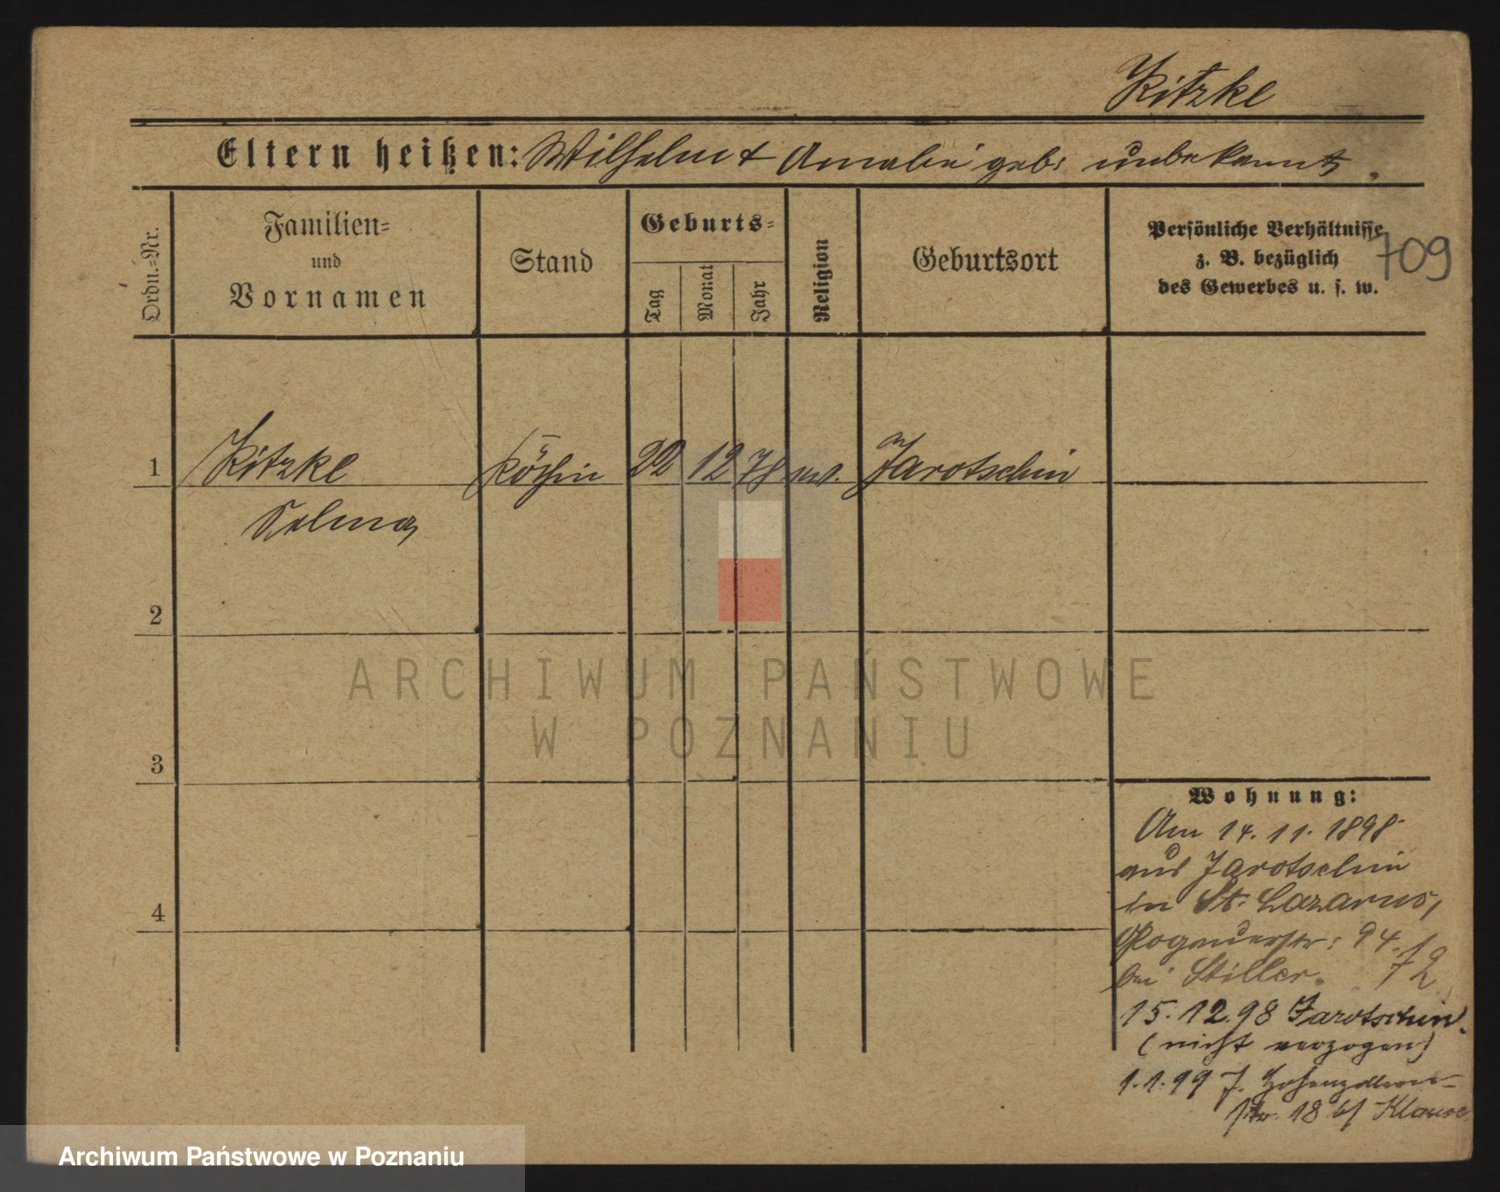 Kitzke
Eltern heißen: Wilhelm & Amalie geb. unbekannt.
Ordn.-Nr.
Familien-
und
Vornamen
Stand
Geburts-
Tag
Monat
Jahr
Religion
Geburtsort
Persönliche Verhältnisse
z. B. bezüglich
des Gewerbes u. s. w.
709
1 Kitzke Köchin 22 12 78 ev. Jarotschin
Selma
2
3
4
ARCHIWUM PAŃSTWOWE
W POZNANIU
Wohnung:
Am 14.11.1898
aus Jarotschin
in St. Lazarus,
Glogauerstr. 94. I
bei Stiller. 72
15.12.98 Jarotschin.
(nicht verzogen)
1.1.99 J. Hohenzollern-
str. 18 b/ Klause
Archiwum Państwowe w Poznaniu